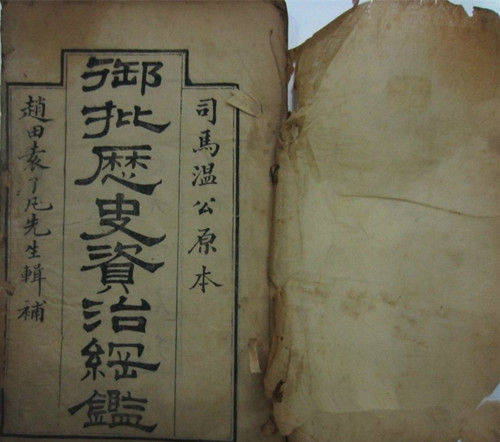 司馬溫公原本
御批歷史資治綱鑑
趙田袁了凡先生輯補